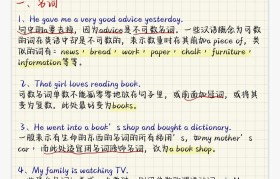 一、名词
1、He gave me a very good advice yesterday.
句中的a要去掉，因为advice是不可数名词。一些汉语概念为可数
的词在英语中却是不可数的，表示数量时在其前加a piece of，类
似的词有：news，bread，work，paper，chalk，furniture，
information等等。
2、That girl loves reading book.
可数名词单数不能孤零零地放在句子里，或前面加冠词，或将其
变为复数，此处最好变为books。
3、He went into a book's shop and bought a dictionary.
一般表示有生命的东西的词的所有格用's，如my mother's
car，而此处适宜用名词修饰名词，改为a book shop。
4、My family is watching TV.